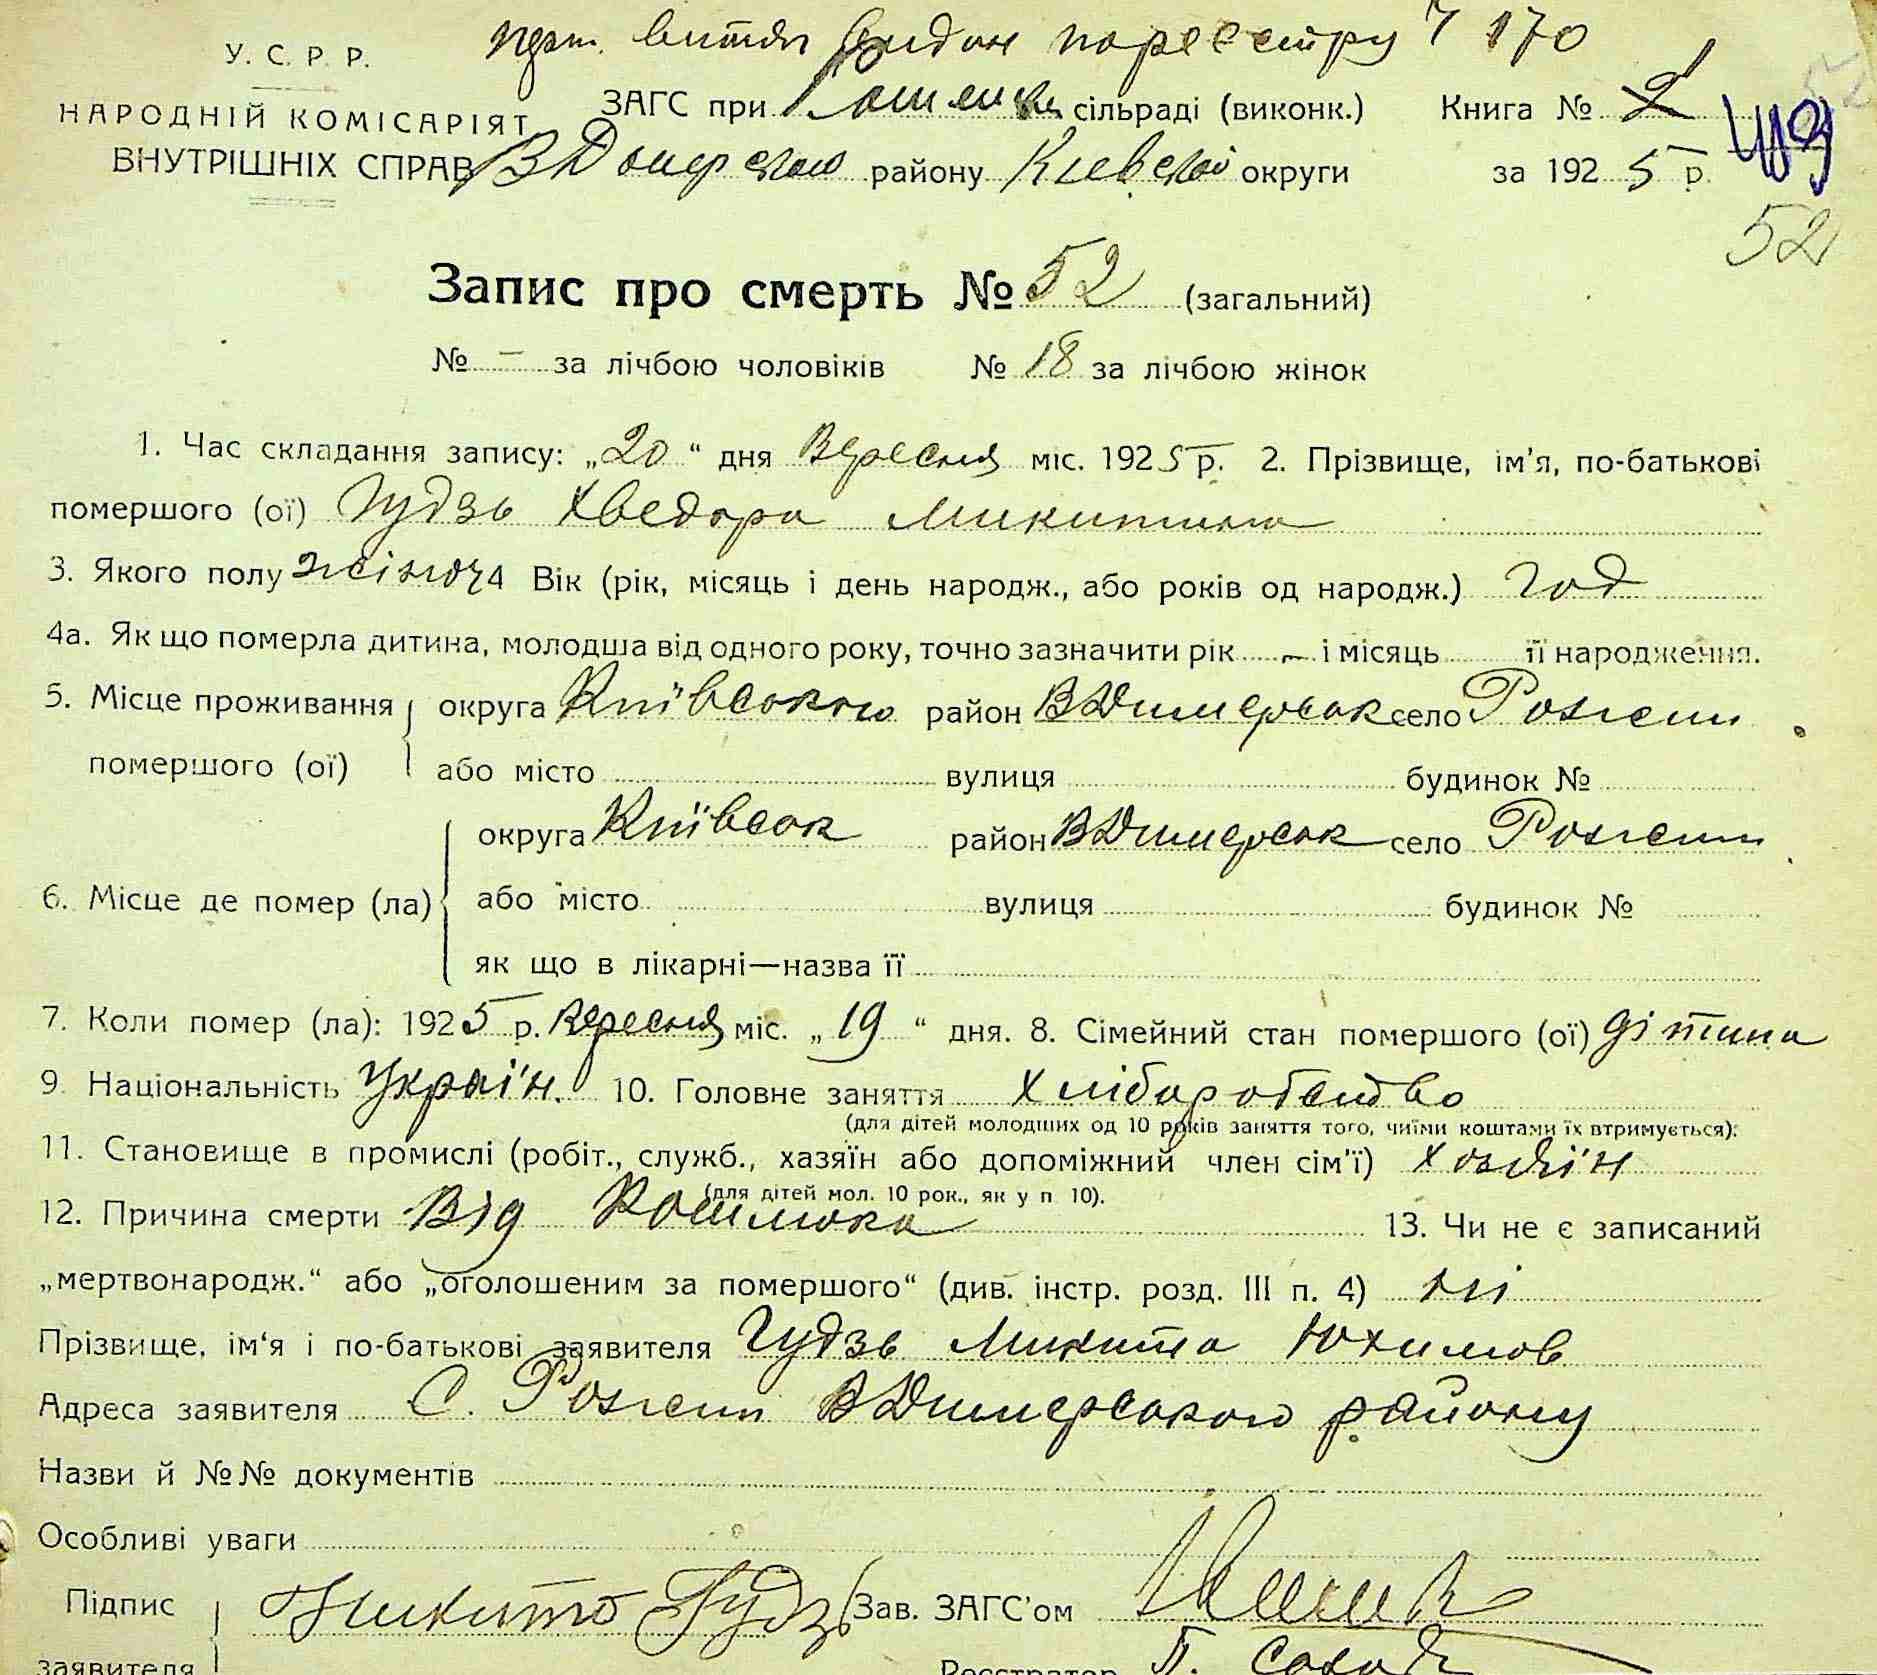 видан по реєстру № 170
У. С. Р. Р.
НАРОДНІЙ КОМІСАРІЯТ
ВНУТРІШНІХ СПРАВ
ЗАГС при сільраді (виконк.) Книга № 2
ВДимерскою району Киевской округи за 1925 р.
52
Запис про смерть № 52 (загальний)
№ – за лічбою чоловіків № 18 за лічбою жінок
1. Час складання запису: „20“ дня Вересня міс. 1925 р. 2. Прізвище, ім'я, по-батькові
помершого (ої) Гудзь Хведора Микитина
3. Якого полу жіноча Вік (рік, місяць і день народж., або років од народж.) год
4а. Як що померла дитина, молодша від одного року, точно зазначити рік – і місяць її народження.
5. Місце проживання помершого (ої) округа Київською район ВДимерськ село Рожени
або місто вулиця будинок №
6. Місце де помер (ла) округа Київськ район ВДимерськ село Рожени
або місто вулиця будинок №
як що в лікарні—назва її
7. Коли помер (ла): 1925 р. Вересня міс. „19“ дня. 8. Сімейний стан помершого (ої) дітина
9. Національність Україін. 10. Головне заняття Хліборобство
(для дітей молодших од 10 років заняття того, чиїми коштами їх втримується):
11. Становище в промислі (робіт., служб., хазяїн або допоміжний член сім'ї) хозяін
(для дітей мол. 10 рок., як у п 10).
12. Причина смерти Від Кошлюка 13. Чи не є записаний
„мертвонародж.“ або „оголошеним за помершого“ (див. інстр. розд. III п. 4) ні
Прізвище, ім'я і по-батькові заявителя Гудзь Микита Юхимов
Адреса заявителя С. Рожени ВДимерського району
Назви й №№ документів
Особливі уваги
Підпис заявителя Микита Гудзь Зав. ЗАГС'ом
Реєстратор П.